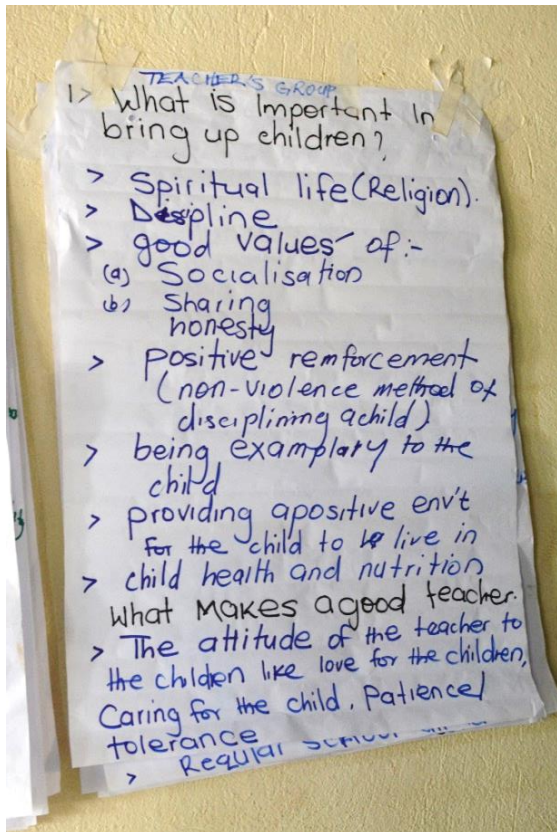 TEACHER'S GROUP
1> What is Important In
bring up children?
> Spiritual life (Religion).
> Despline
> good values of:-
(a) Socialisation
(b) Sharing
honesty
> positive reinforcement
(non-violence method of
disciplining a child)
> being examplary to the
child
> providing apositive env't
for the child to live in
> child health and nutrition
What MAKES a good teacher.
> The attitude of the teacher to
the children like love for the children,
Caring for the child, Patience/
tolerance
> Regular